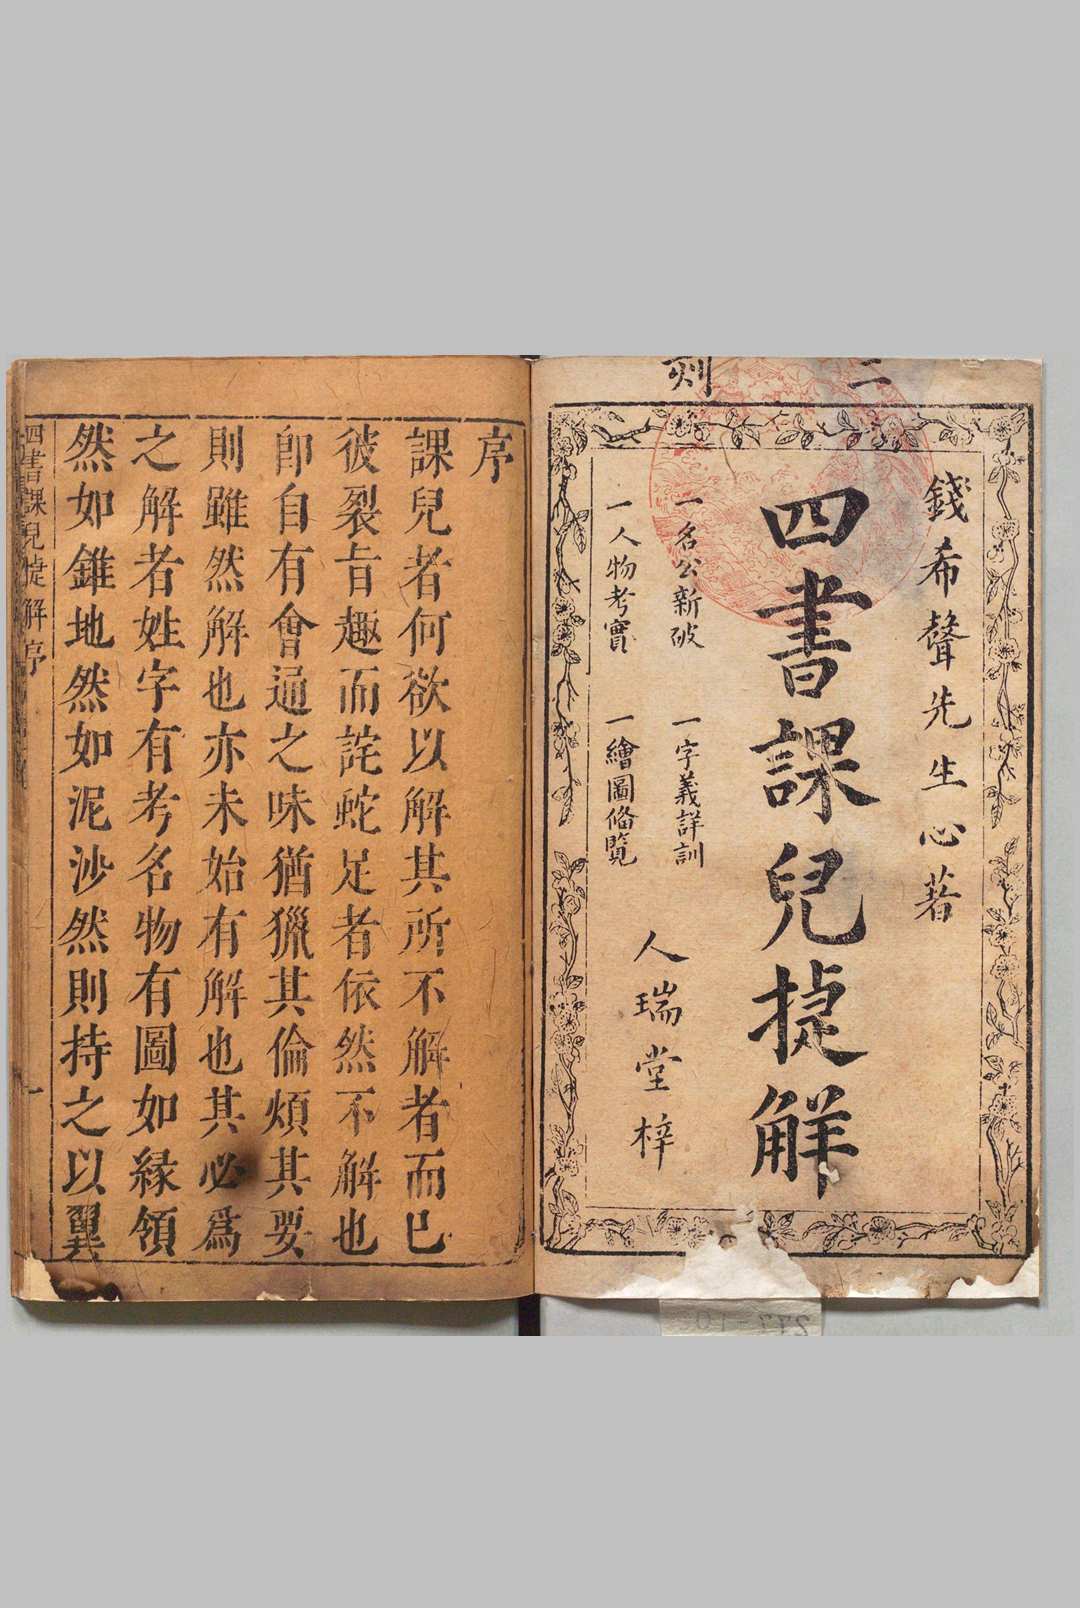 二刻
錢希聲先生心著
四書課兒捷解
一名公新破 一字義詳訓
一人物考實 一繪圖俻覽
人瑞堂梓
序
課兒者何欲以解其所不解者而已
彼裂旨趣而詫蛇足者依然不解也
卽自有會通之味猶獵其倫煩其要
則雖然解也亦未始有解也其必爲
之解者姓字有考名物有圖如緣領
然如錐地然如泥沙然則持之以翼
四書課兒捷解序
一